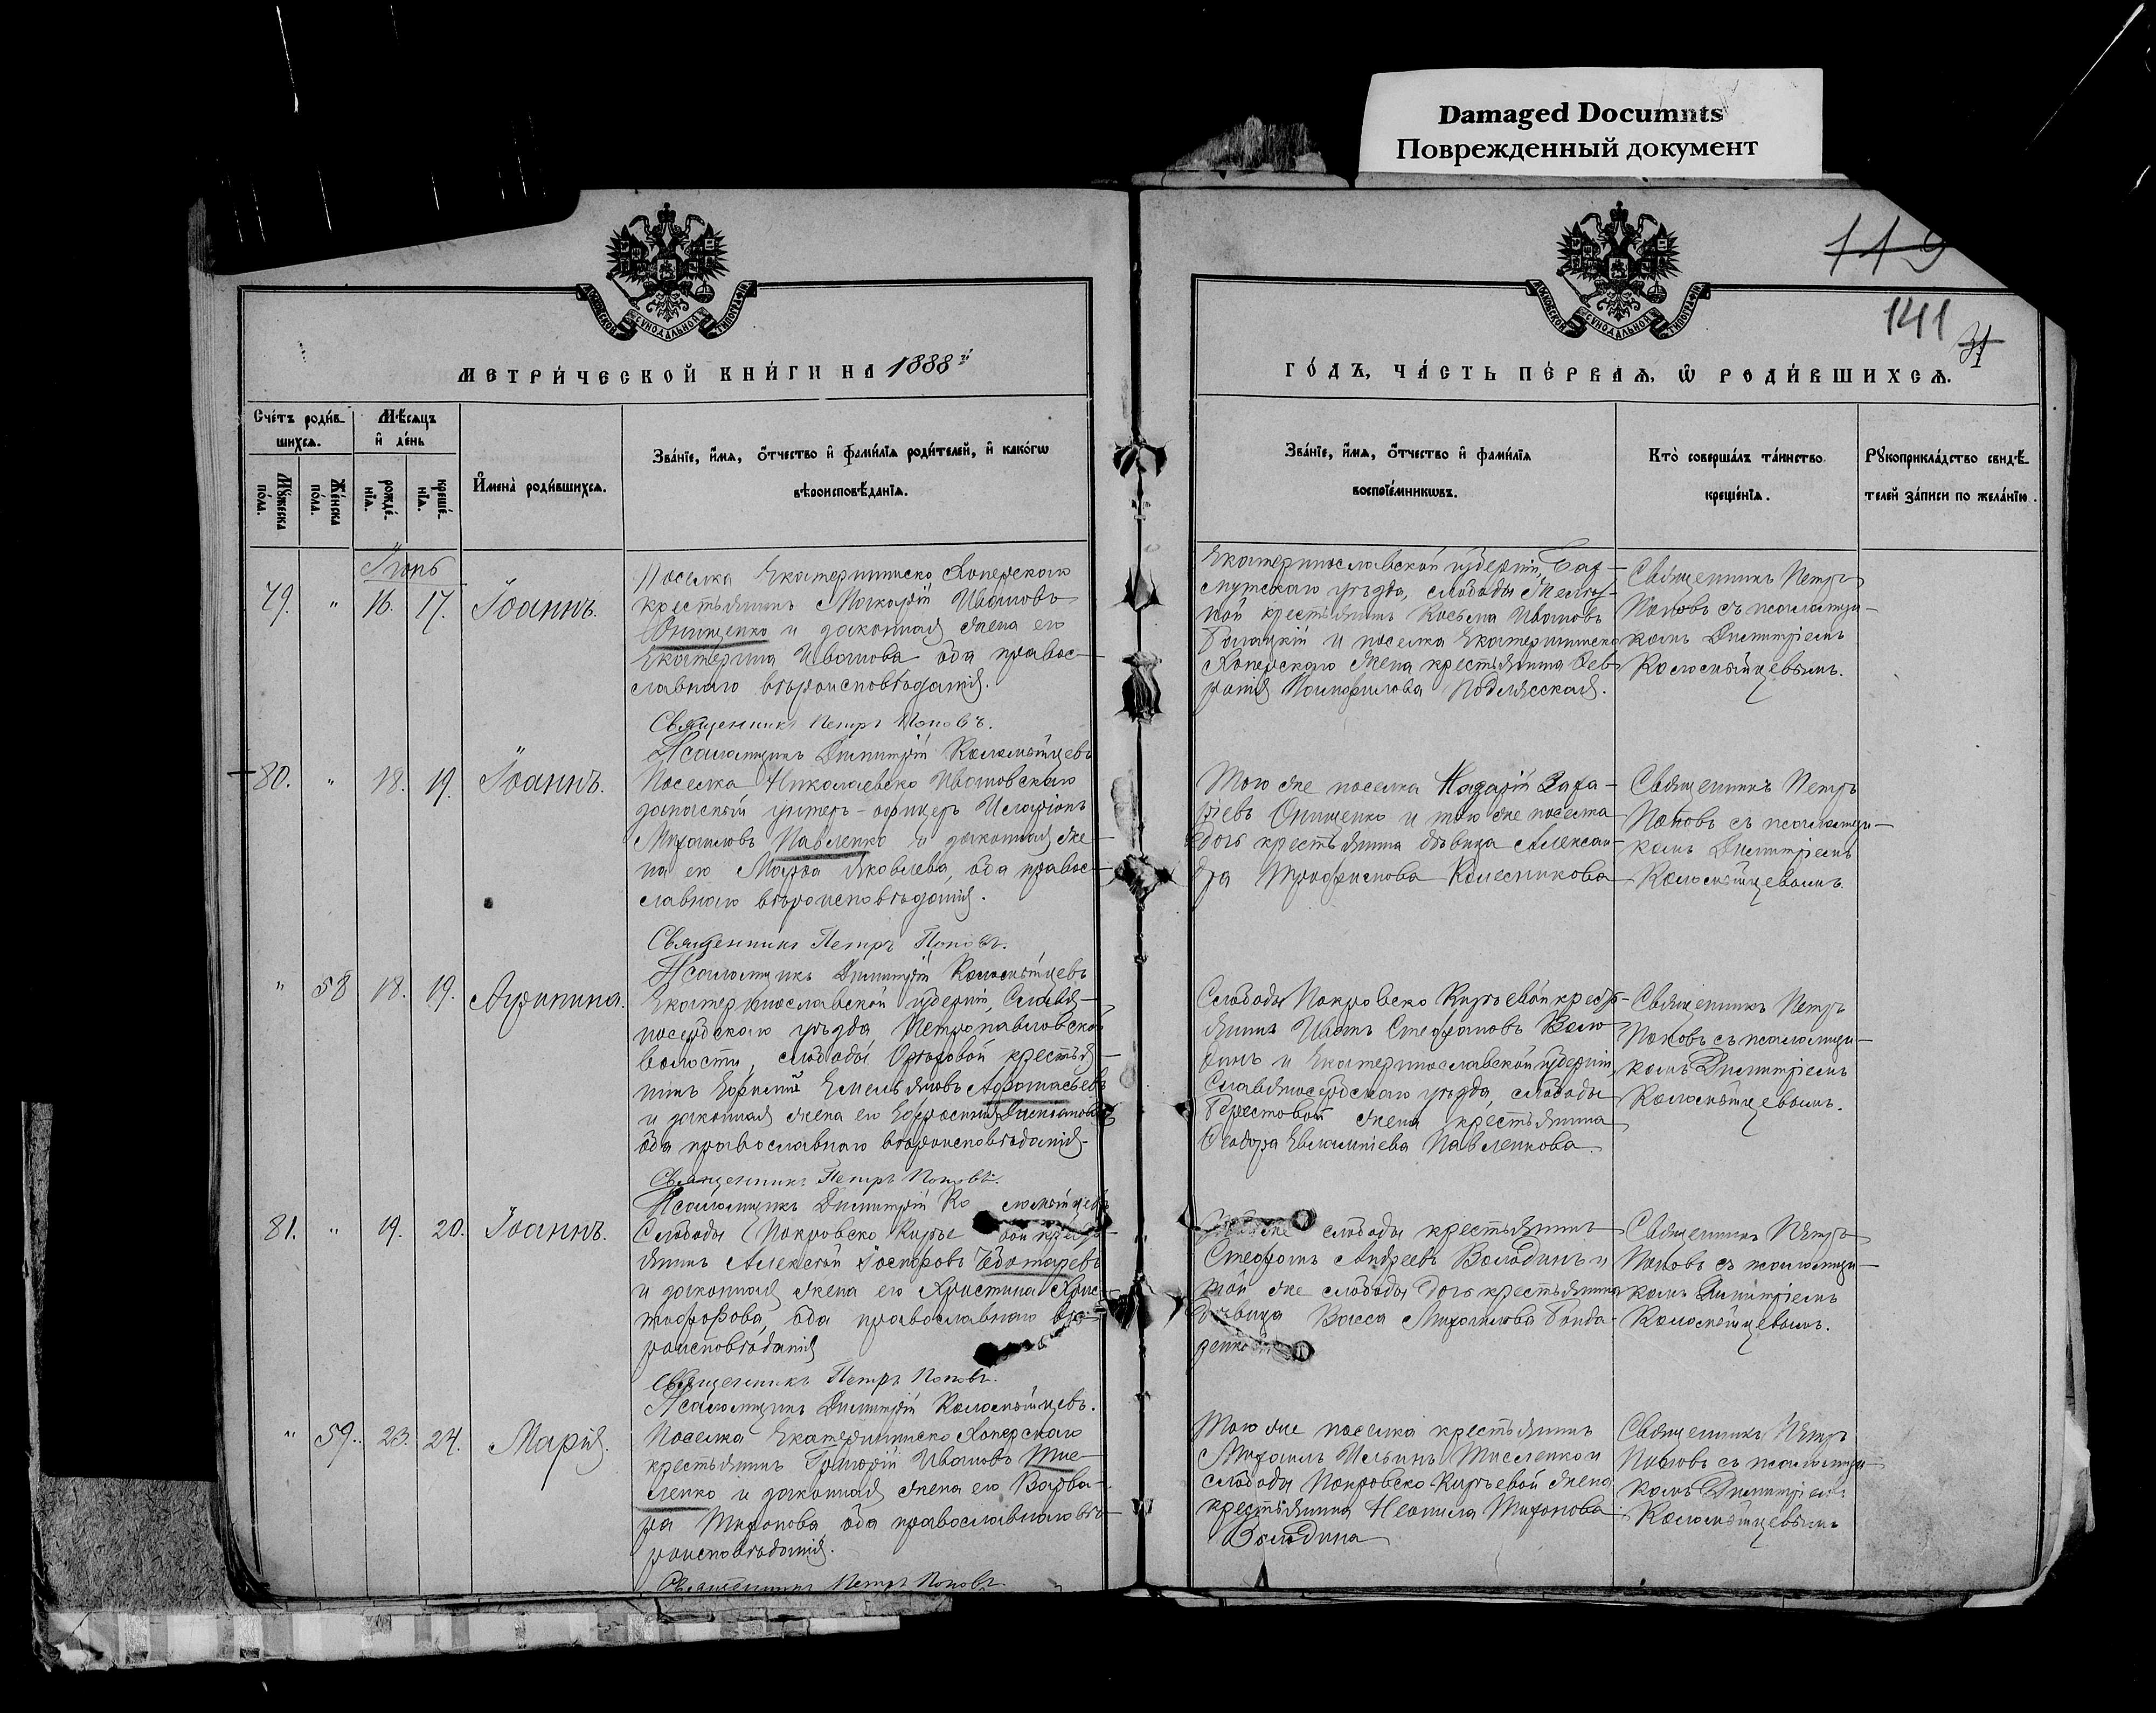 Damaged Documnts
Поврежденный документ
119
141
МОСКОВСКОЙ СУНОДАЛЬНОЙ ТИПОГРАФІИ
МОСКОВСКОЙ СУНОДАЛЬНОЙ ТИПОГРАФІИ
МЕТРИ́ЧЕСКОЙ КНИ́ГИ НА 1888й
ГО́ДЪ, ЧА́СТЬ ПЕ́РВАѦ, Ѡ҆ РОДИ́ВШИХСѦ.
Сче́тъ роди́в-
шихсѧ.
Мѣ́сѧцъ
и҆ де́нь
Мꙋ́жеска по́ла.
Же́нска по́ла.
рожде́-нїѧ.
креще́-нїѧ.
И҆мена̀ роди́вшихсѧ.
Зва́нїе, и҆́мѧ, ѻ҆́тчество и҆ фами́лїѧ роди́телей, и҆ како́гѡ
вѣроисповѣ́данїѧ.
Зва́нїе, и҆́мѧ, ѻ҆́тчество и҆ фами́лїѧ
воспрїе́мникѡвъ.
Кто̀ соверша́лъ та́инство
креще́нїѧ.
Рꙋкоприкла́дство свидѣ́-
телей за́писи по жела́нїю.
Іюнь
79. " 16. 17. Іоаннъ.
Поселка Екатерининско Хоперскаго
крестьянинъ Макарій Ивановъ
Онищенко и законная жена его
Екатерина Иванова оба правос-
лавнаго вѣроисповѣданія.
Священникъ Петръ Поповъ.
Псаломщикъ Димитрій Коломыйцевъ
Екатеринославской губерніи, Бах-
мутскаго уѣзда, слободы
крестьянинъ Косьма Ивановъ
и поселка Екатерининско
Хоперскаго жена крестьянина Фев-
ронія Памфилова
Священникъ Петръ
Поповъ съ псаломщи-
комъ Димитріемъ
Коломыйцевымъ.
80. " 18. 19. Іоаннъ.
Поселка Николаевско Ивановскаго
запасный унтеръ-офицеръ Иларіонъ
Михаиловъ Павленко и законная же-
на его Марфа Яковлева, оба правос-
лавнаго вѣроисповѣданія.
Священникъ Петръ Поповъ.
Псаломщикъ Димитрій Коломыйцевъ
Того же поселка Назарій Заха-
ріевъ Онищенко и того же поселка
дочь крестьянина дѣвица Алексан-
дра Трофимова Колесникова
Священникъ Петръ
Поповъ съ псаломщи-
комъ Димитріемъ
Коломыйцевымъ.
" 58 18. 19. Агрипина.
Екатеринославской губерніи, Славя-
носербскаго уѣзда Петропавловской
волости, слободы Орѣховой крестья-
нинъ Ефимій Емельяновъ Афанасьевъ
и законная жена его Ефросинія
оба православнаго вѣроисповѣданія.
Священникъ Петръ Поповъ.
Псаломщикъ Димитрій Коломыйцевъ
Слободы Покровско Кирѣевой кресть-
янинъ Иванъ Стефановъ Воло-
динъ и Екатеринославской губерніи,
Славяносербскаго уѣзда, слободы
Берестовой жена крестьянина
Ѳеодора Евлампіева Павленкова.
Священникъ Петръ
Поповъ съ псаломщи-
комъ Димитріемъ
Коломыйцевымъ.
81. " 19. 20. Іоаннъ.
Слободы Покровско Кирѣевой кресть-
янинъ Алексѣй Іосифовъ Чеботаревъ
и законная жена его Христина Хрис-
тофорова, оба православнаго вѣ-
роисповѣданія
Священникъ Петръ Поповъ.
Псаломщикъ Димитрій Коломыйцевъ.
же слободы крестьянинъ
Стефанъ Андреевъ Володинъ и
той же слободы дочь крестьянина
дѣвица Васса Михаилова Бонда-
ренкова
Священникъ Петръ
Поповъ съ псаломщи-
комъ Димитріемъ
Коломыйцевымъ.
" 59. 23. 24. Марія.
Поселка Екатерининско Хоперскаго
крестьянинъ Григорій Ивановъ Тис-
ленко и законная жена его Варва-
ра Тихонова оба православнаго вѣ-
роисповѣданія.
Священникъ Петръ Поповъ.
Того же поселка крестьянинъ
Михаилъ Ильинъ Тисленко и
слободы Покровско-Кирѣевой жена
крестьянина Неонила Тихонова
Володина
Священникъ Петръ
Поповъ съ псаломщи-
комъ Димитріемъ
Коломыйцевымъ